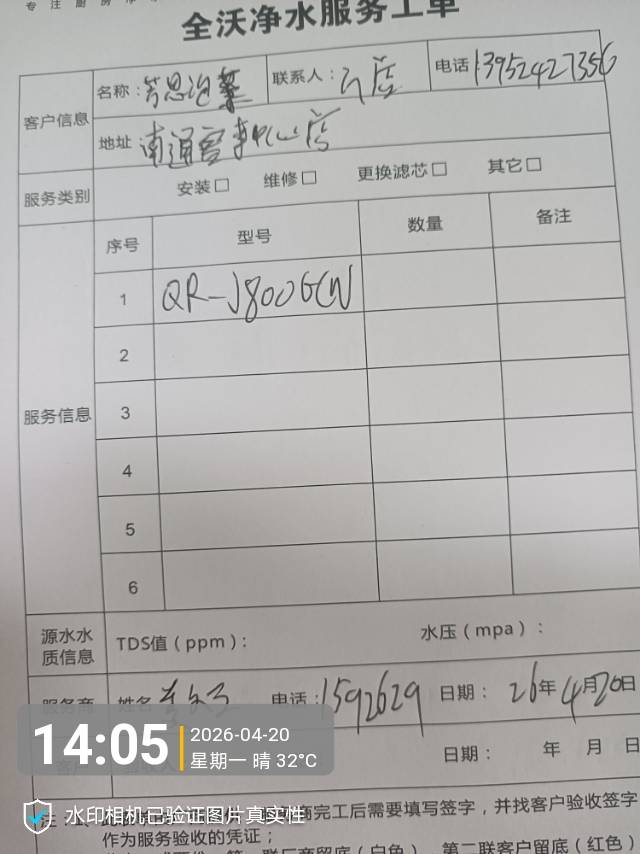 专注厨房净
全沃净水服务工单
客户信息 名称: 联系人: 店 电话 13952427356
地址 南通 中心店
服务类别 安装□ 维修□ 更换滤芯□ 其它□
服务信息 序号 型号 数量 备注
1 QR-J800GCW
2
3
4
5
6
源水水质信息 TDS值(ppm): 水压(mpa):
服务商 姓名 电话: 1592629 日期: 26年4月20日
14:05 2026-04-20
星期一 晴 32℃
日期: 年 月 日
水印相机已验证图片真实性
商完工后需要填写签字,并找客户验收签字
作为服务验收的凭证;
第二联客户留底(红色)